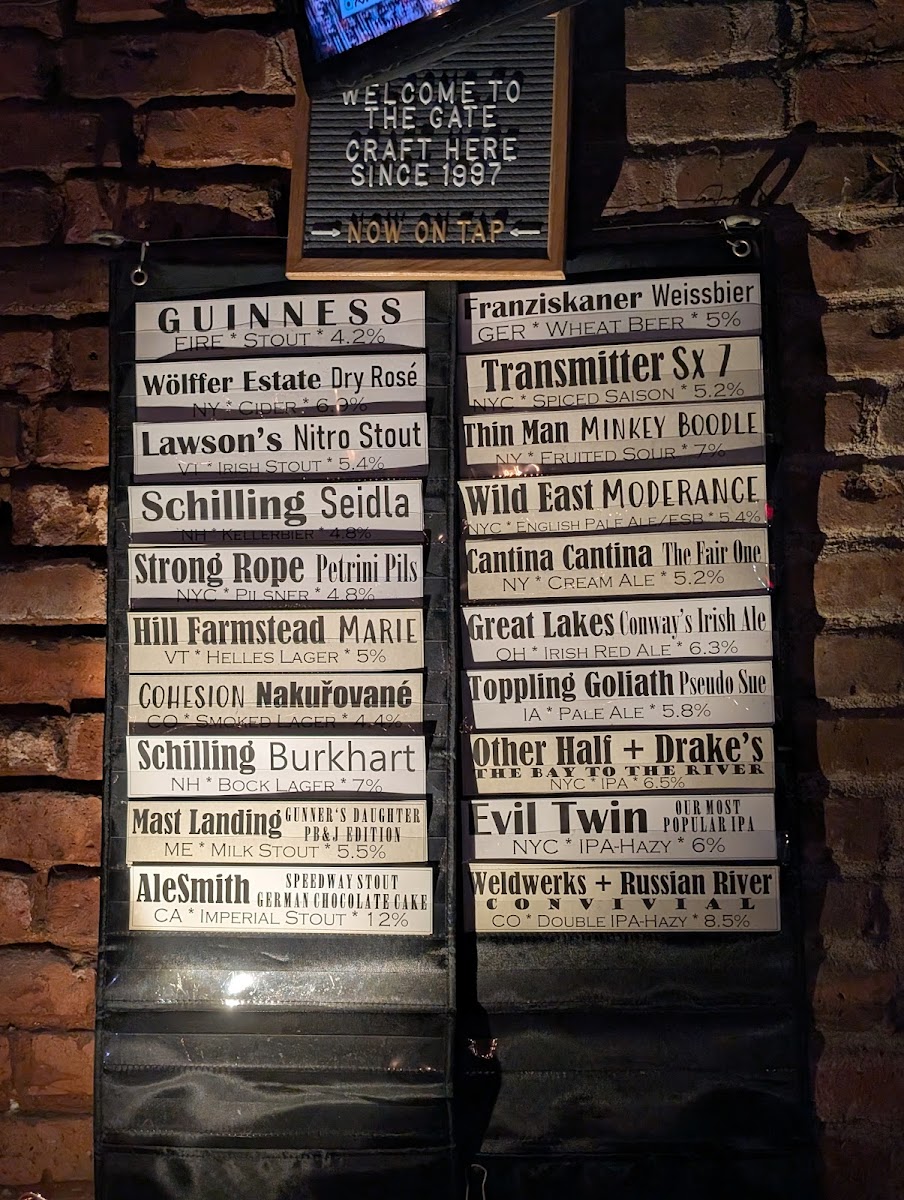 WELCOME TO
THE GATE
CRAFT HERE
SINCE 1997
NOW ON TAP
GUINNESS
EIRE * STOUT * 4.2%
Wölffer Estate Dry Rosé
NY * CIDER * 6.9%
Lawson's Nitro Stout
VT * IRISH STOUT * 5.4%
Schilling Seidla
NH * KELLERBIER * 4.8%
Strong Rope Petrini Pils
NYC * PILSNER * 4.8%
Hill Farmstead MARIE
VT * HELLES LAGER * 5%
COHESION Nakuřované
CO * SMOKED LAGER * 4.4%
Schilling Burkhart
NH * BOCK LAGER * 7%
Mast Landing GUNNER'S DAUGHTER
PB&J EDITION
ME * MILK STOUT * 5.5%
AleSmith SPEEDWAY STOUT
GERMAN CHOCOLATE CAKE
CA * IMPERIAL STOUT * 12%
Franziskaner Weissbier
GER * WHEAT BEER * 5%
Transmitter Sx 7
NYC * SPICED SAISON * 5.2%
Thin Man MINKEY BOODLE
NY * FRUITED SOUR * 7%
Wild East MODERANCE
NYC * ENGLISH PALE ALE/ESB * 5.4%
Cantina Cantina The Fair One
NY * CREAM ALE * 5.2%
Great Lakes Conway's Irish Ale
OH * IRISH RED ALE * 6.3%
Toppling Goliath Pseudo Sue
IA * PALE ALE * 5.8%
Other Half + Drake's
THE BAY TO THE RIVER
NYC * IPA * 6.5%
Evil Twin OUR MOST
POPULAR IPA
NYC * IPA-HAZY * 6%
Weldwerks + Russian River
CONVIVIAL
CO * DOUBLE IPA-HAZY * 8.5%